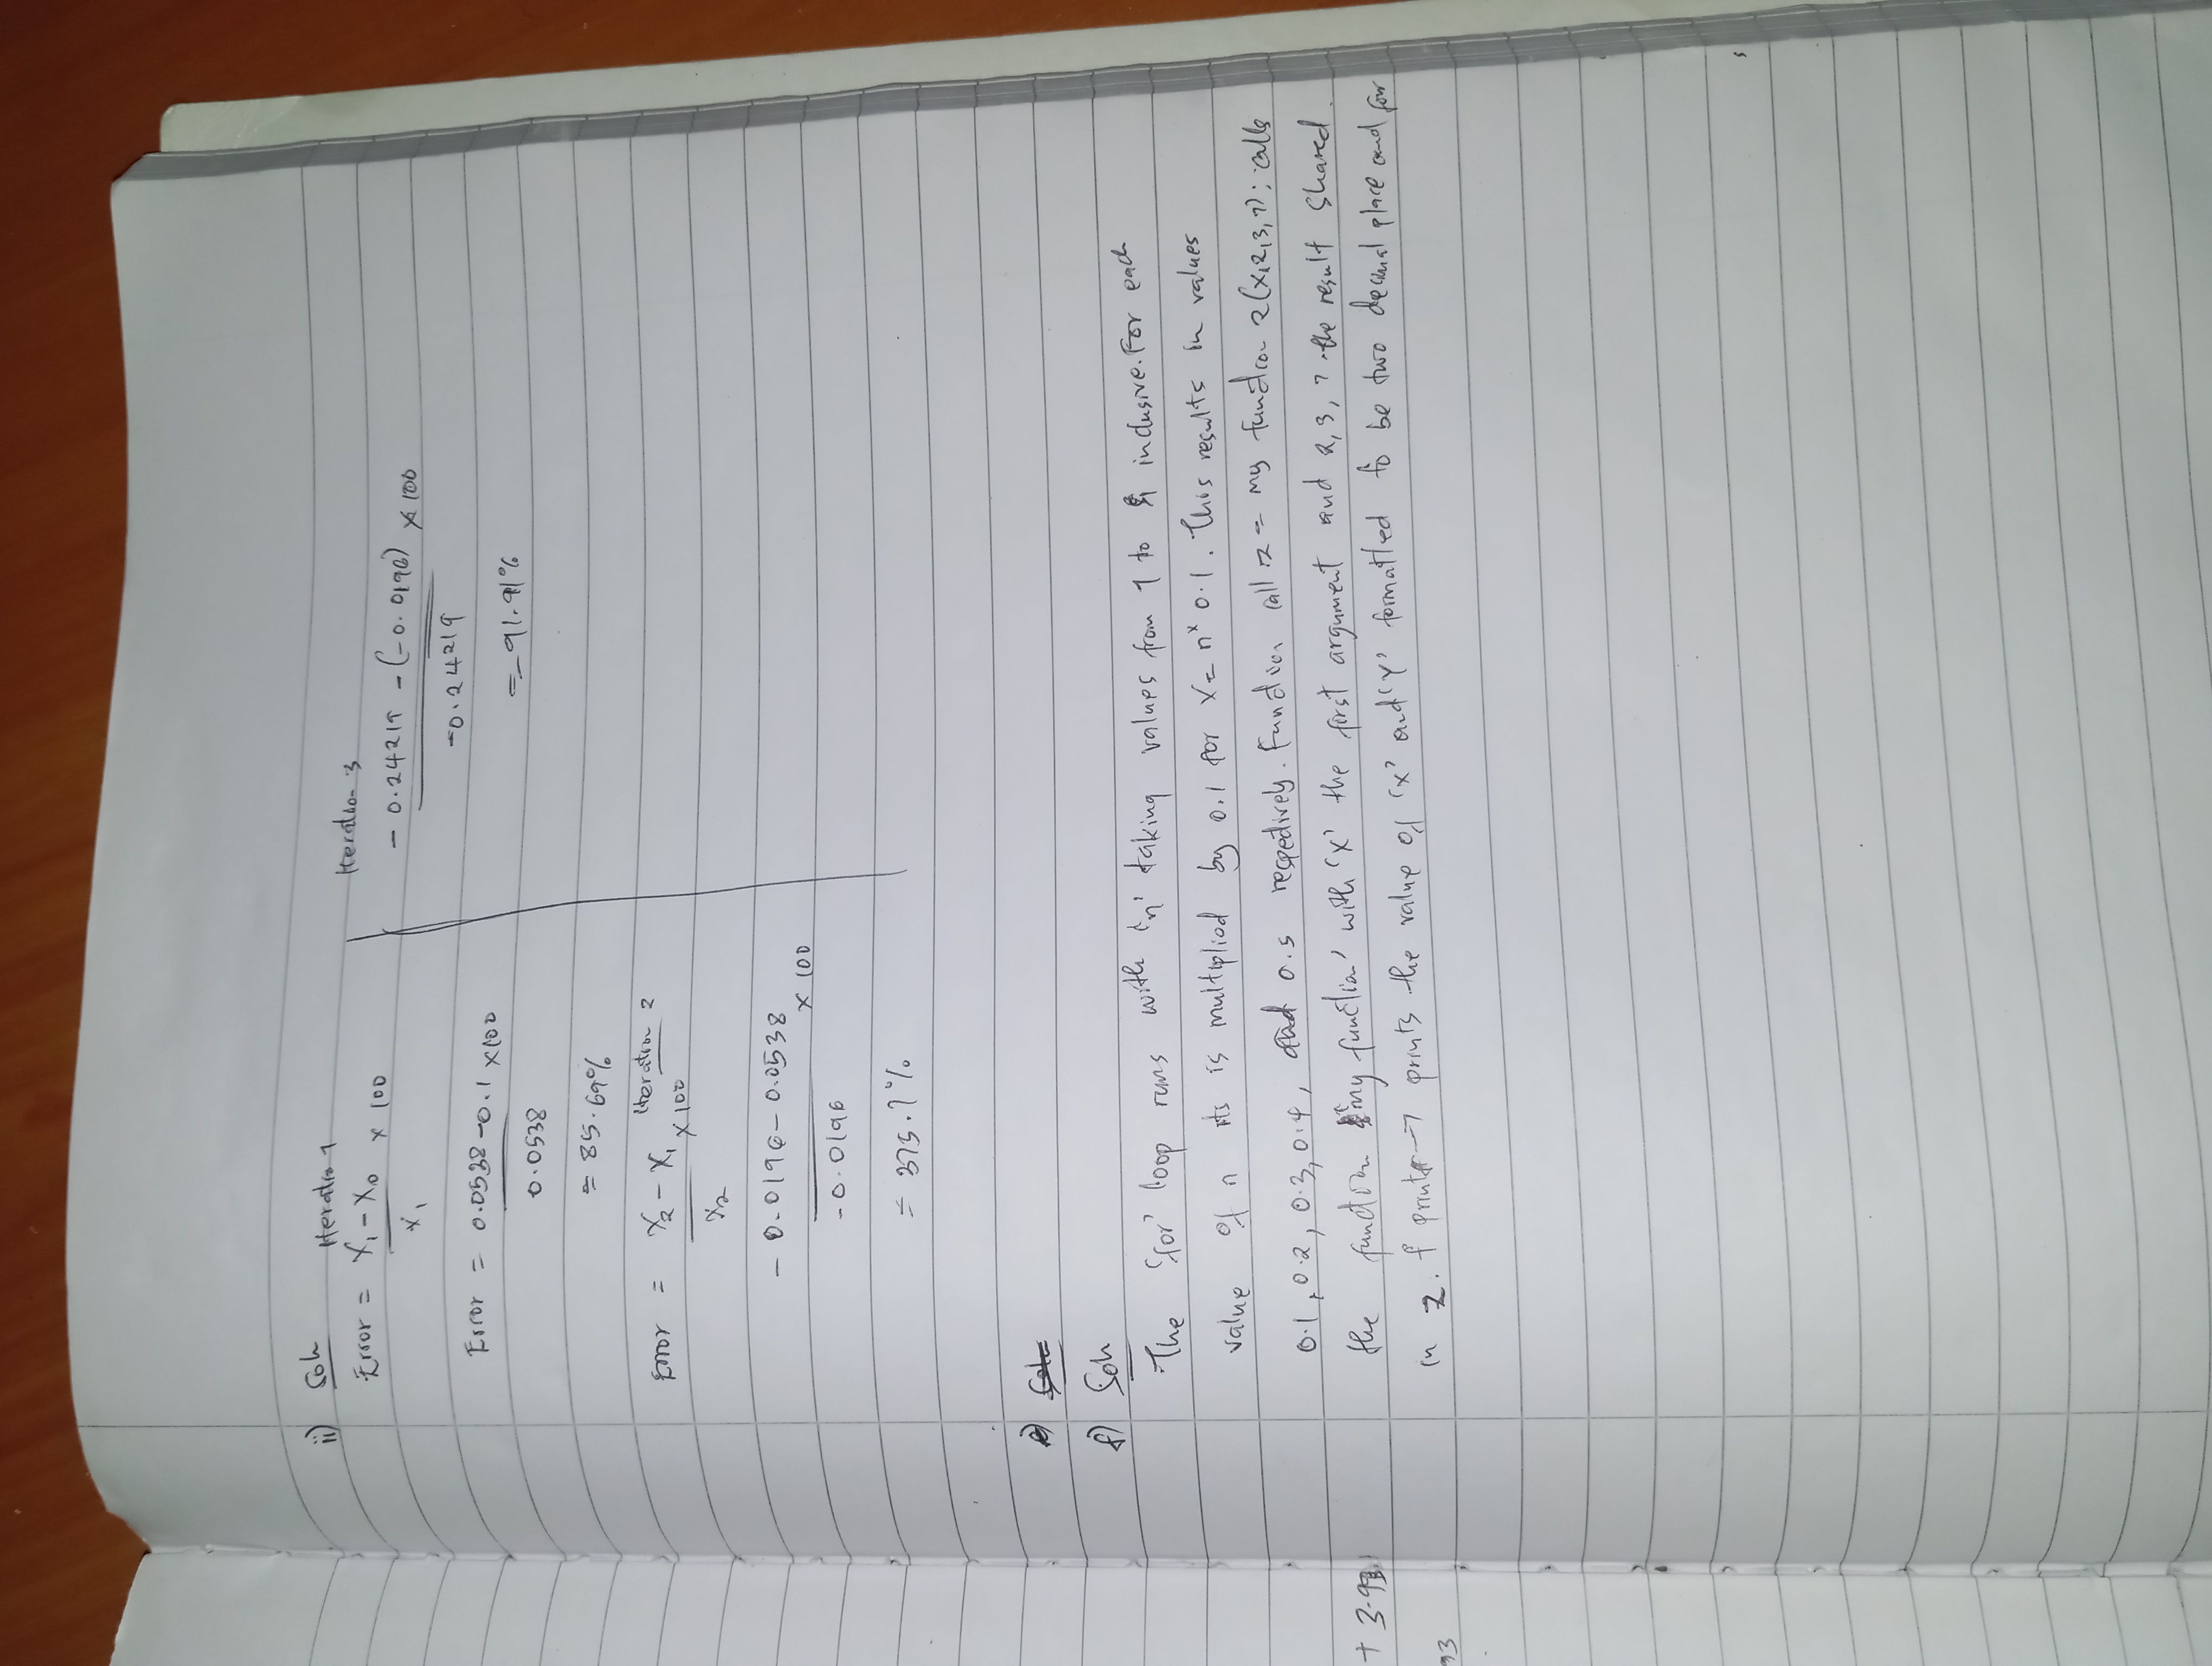 ii) Soln
Iteratio 1
Error = X₁ - X₀ × 100
X₁
Error = 0.0538 - 0.1 × 100
0.0538
= 85.69%
Iteration 2
Error = X₂ - X₁ × 100
X₂
- 0.0196 - 0.0538
× 100
- 0.0196
= 375.7%
Iteration 3
- 0.24219 - (-0.0196) × 100
-0.24219
= -91.91%
f) Soln
The 'for' loop runs with 'n' taking values from 1 to inclusive. For each
value of n its is multiplied by 0.1 for X = n* 0.1. This results in values
0.1, 0.2, 0.3, 0.4, and 0.5 respectively. Function call z = my function 2(x,2,3,7); calls
the function 'my function' with 'x' the first argument and 2, 3, 7 the result shared
in z. f printf → prints the value of 'x' and 'Y' formatted to be two decimal place and four
+ 3.93
93